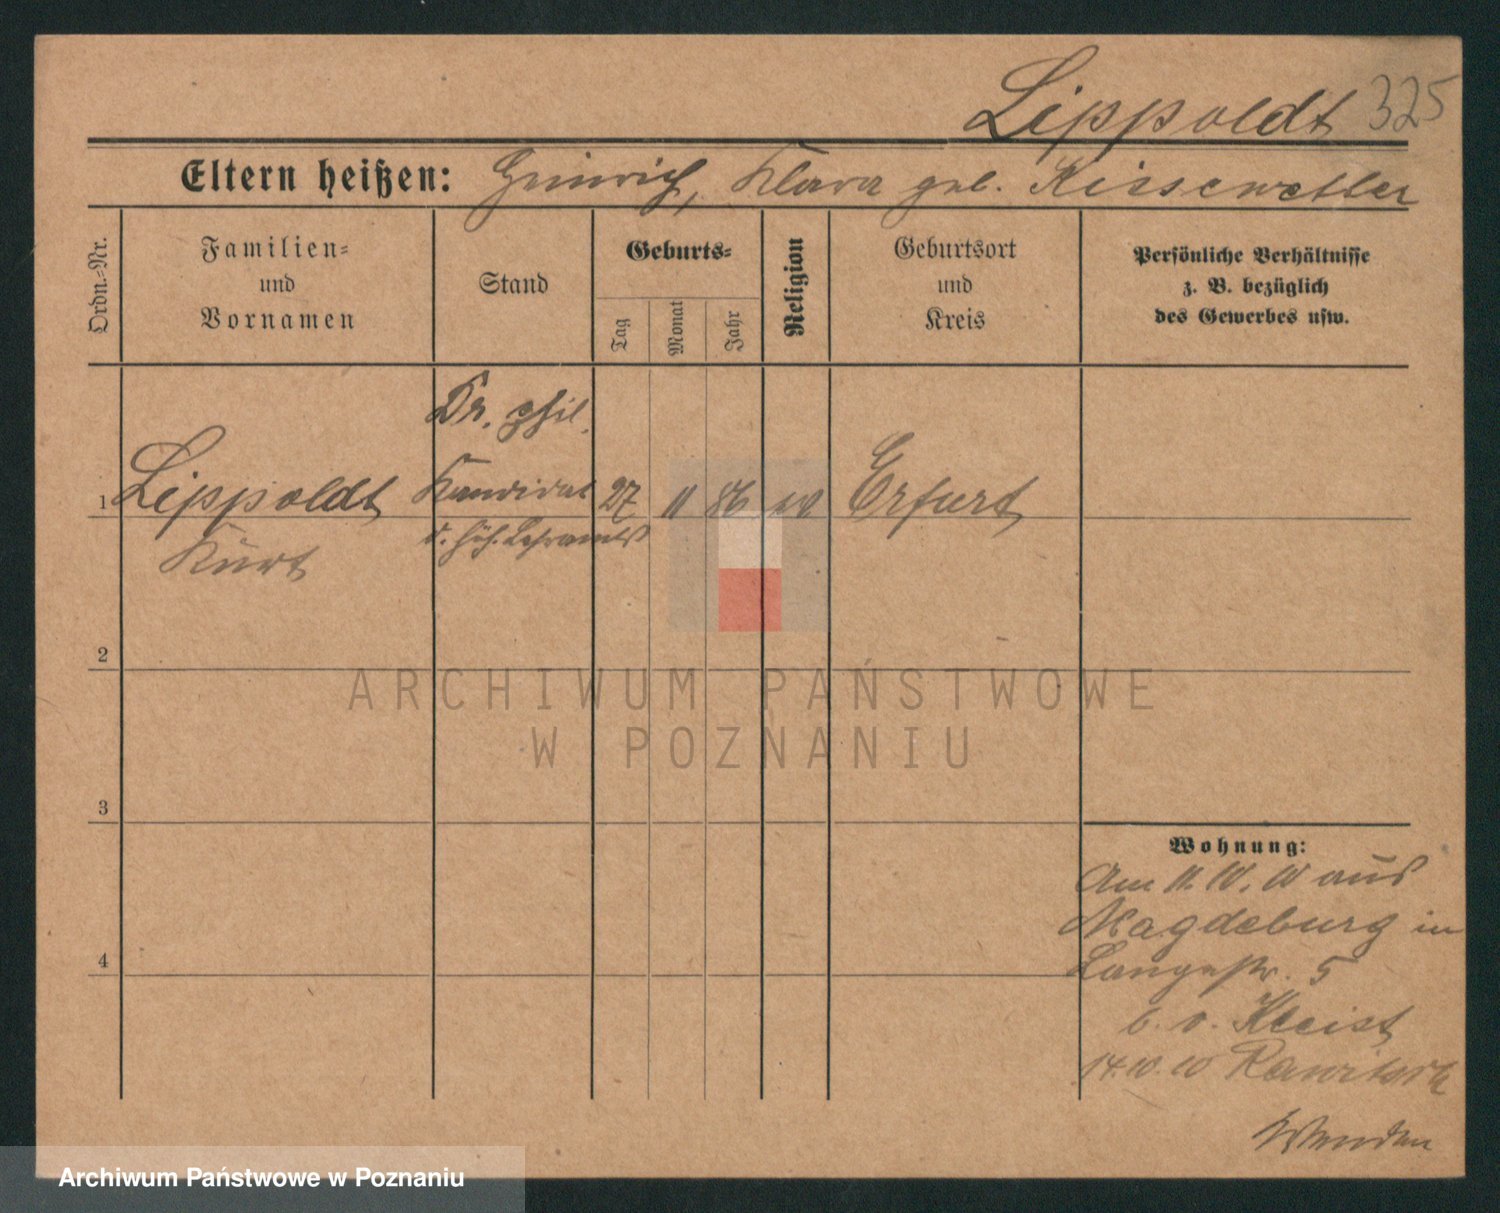 Lippoldt 325
Eltern heißen: Heinrich, Klara geb. Kiesewetter
Ordn.-Nr.
Familien-
und
Vornamen
Stand
Geburts-
Tag
Monat
Jahr
Religion
Geburtsort
und
Kreis
Persönliche Verhältnisse
z. B. bezüglich
des Gewerbes usw.
Dr. phil.
1 Lippoldt Kandidat 27 11 86 Erfurt
d. höh. Lehramts
Kurt
2
3
4
Wohnung:
Am 11. 10. 10 aus
Magdeburg in
Langestr. 5
b. v. Kleist
14.10.10 Rawitsch
Wenden
ARCHIWUM PAŃSTWOWE
W POZNANIU
Archiwum Państwowe w Poznaniu